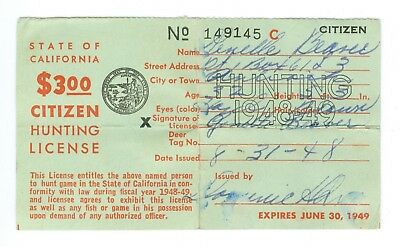 STATE OF CALIFORNIA
$3.00
CITIZEN
HUNTING
LICENSE
This License entitles the above named person
to hunt game in the State of California in con-
formity with law during fiscal year 1948-49,
and licensee agrees to exhibit this license
as well as any fish or game in his possession
upon demand of any authorized officer.
No 149145 C CITIZEN
Name
Street Address
City or Town
Age Height
Eyes (color)
X Signature of Licensee
Deer Tag No.
Date Issued 8-31-48
Issued by
HUNTING
1948-49
EXPIRES JUNE 30, 1949